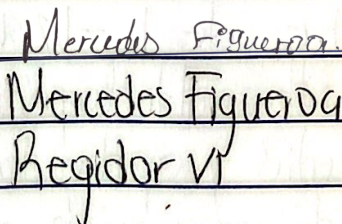 Mercedes Figueroa.
Mercedes Figueroa
Regidor VI